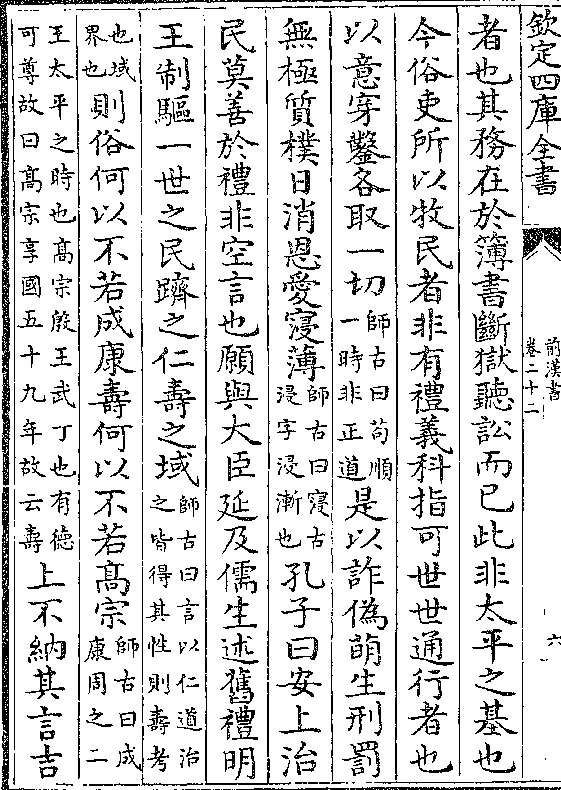 欽定四庫全書
前漢書
卷二十二
六
者也其務在於簿書斷獄聽訟而已此非太平之基也
今俗吏所以牧民者非有禮義科指可世世通行者也
以意穿鑿各取一切師古曰苟順一時非正道是以詐偽萌生刑罰
無極質樸日消恩愛寖薄師古曰寖古浸字浸漸也孔子曰安上治
民莫善於禮非空言也願與大臣延及儒生述舊禮明
王制驅一世之民躋之仁壽之域師古曰言以仁道治之皆得其性則壽考
也域界也則俗何以不若成康壽何以不若髙宗師古曰成康周之二
王太平之時也髙宗殷王武丁也有德可尊故曰髙宗享國五十九年故云壽上不納其言吉